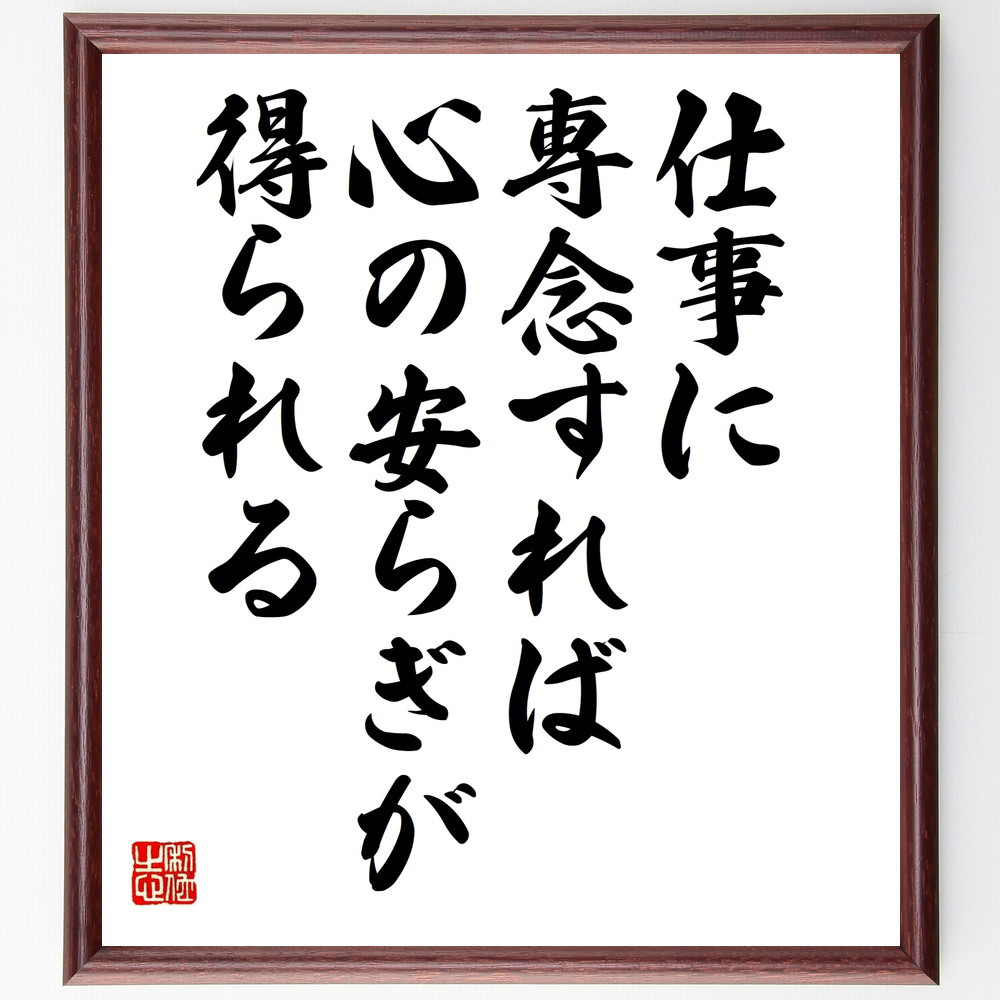 仕事に
専念すれば
心の安らぎが
得られる